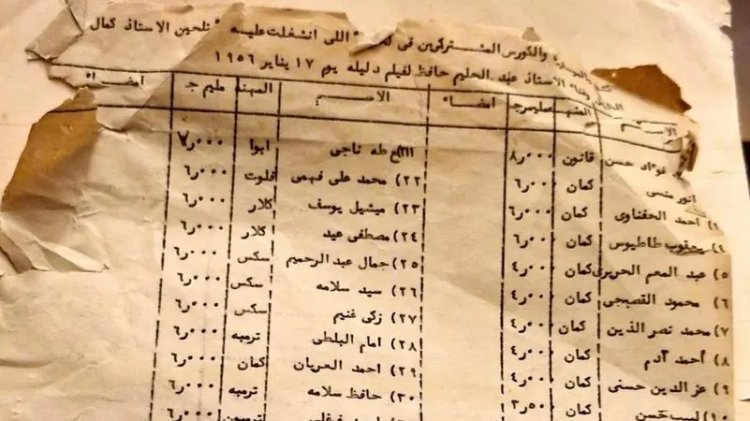 والكورس المشتركين فى اللى انشغلت عليه " تلحين الاستاذ كمال
الاستاذ عبد الحليم حافظ لفيلم دليله يوم ١٧ يناير ١٩٥٦
الاســم المليم جـ امضــاء الاســم المهنه مليم جـ امضــاء
فؤاد حسن قانون ٨ر٠٠٠ طه ناجى ابوا ٧ر٠٠٠
انور منسى كمان ٦ر٠٠٠ ٢٢) محمد على فهمى فلوت ٦ر٠٠٠
احمد الحفناوى كمان ٦ر٠٠٠ ٢٣) ميشيل يوسف كلار ٦ر٠٠٠
٤) يعقوب طاطيوس كمان ٦ر٠٠٠ ٢٤) مصطفى عيد كلار ٦ر٠٠٠
٥) عبد المعم الحريرى كمان ٤ر٠٠٠ ٢٥) جمال عبد الرحيم سكس ٦ر٠٠٠
٦) محمود القصبجى كمان ٤ر٠٠٠ ٢٦) سيد سلامه سكس ٦ر٠٠٠
٧) محمد نصر الدين كمان ٤ر٠٠٠ ٢٧) زكى غنيم سكس ٦ر٠٠٠
٨) أحمد آدم كمان ٤ر٠٠٠ ٢٨) امام البلطى ترمبه ٦ر٠٠٠
٩) عز الدين حسنى كمان ٤ر٠٠٠ ٢٩) احمد العريان كمان ٦ر٠٠٠
١٠) لبيب حسن كمان ٣ر٥٠ ٣٠) حافظ سلامه ترمبه ٦ر٠٠٠